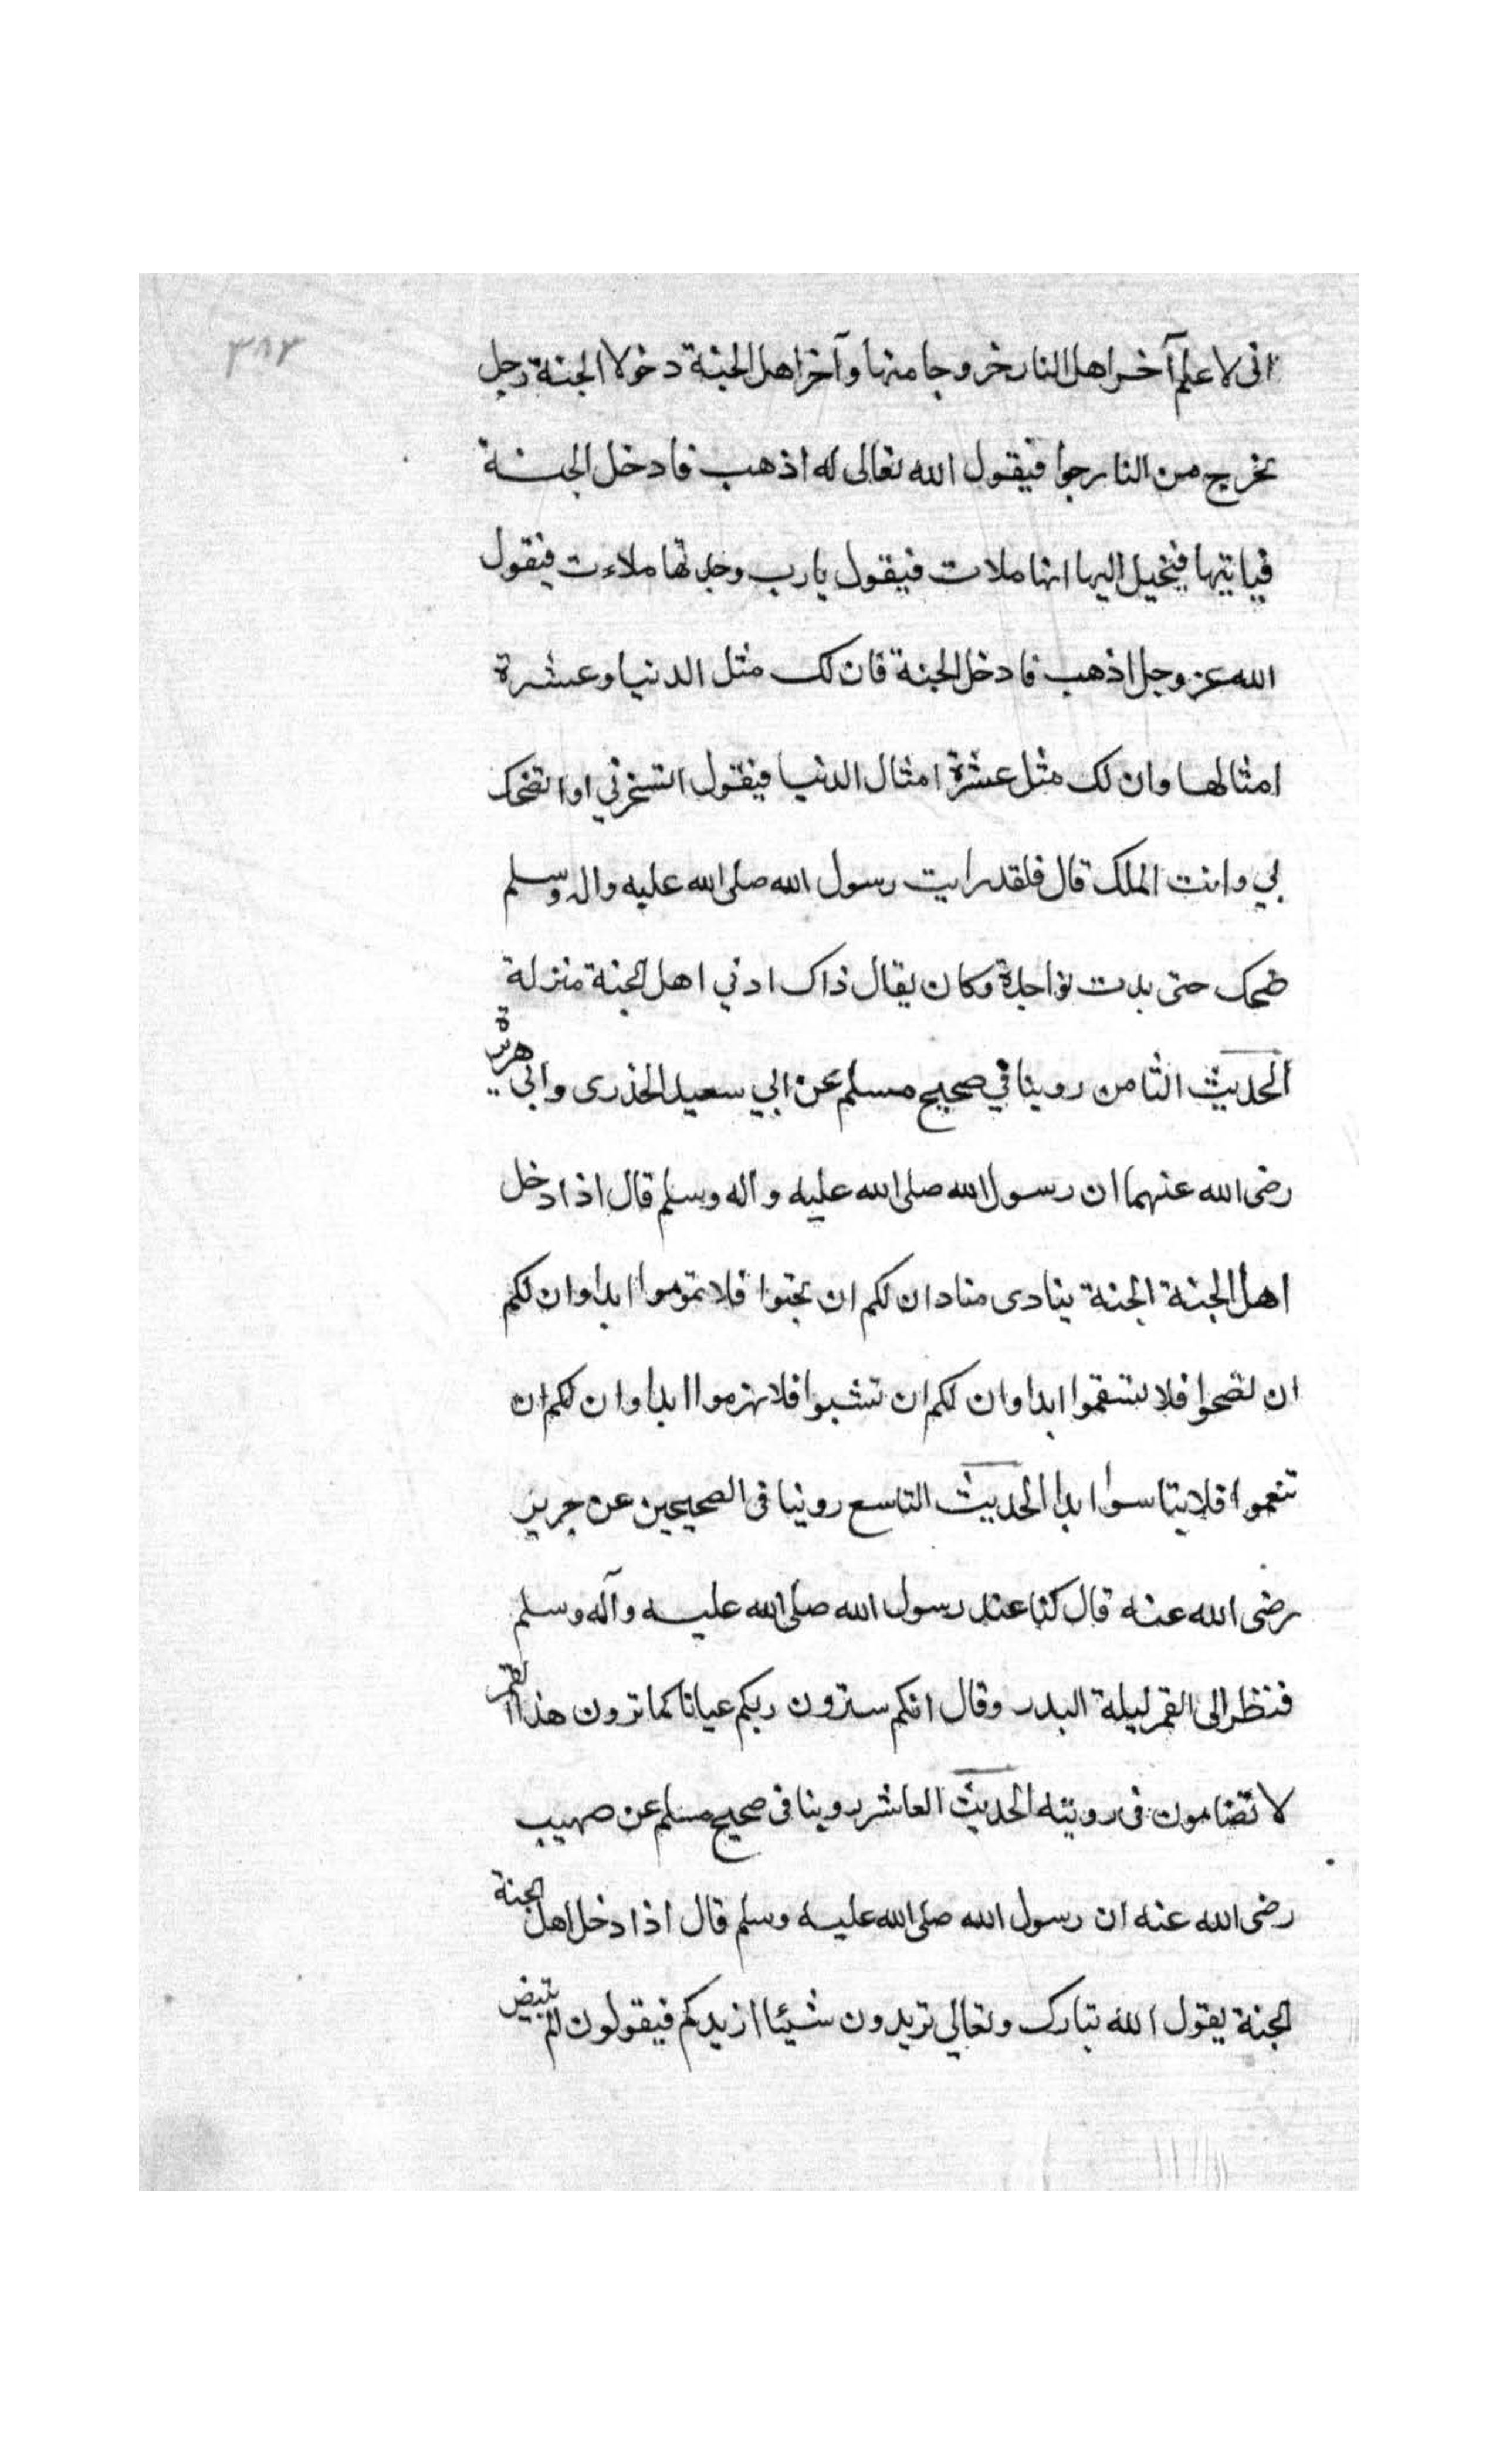 ٣٨٢
انى لاعلم آخر اهل النار خروجا منها وآخر اهل الجنة دخولا الجنة رجل
يخرج من النار حبوا فيقول الله تعالى له اذهب فادخل الجنة
فياتيها فيخيل اليها انها ملات فيقول يارب وجدتها ملاءت فيقول
الله عز وجل اذهب فادخل الجنة فان لك مثل الدنيا وعشرة
امثالها وان لك مثل عشرة امثال الدنيا فيقول اتسخربي او اتضحك
بي وانت الملك قال فلقد رايت رسول الله صلى الله عليه واله وسلم
ضحك حتى بدت نواجذة وكان يقال ذاك ادني اهل الجنة منزلة
الحديث الثامن روينا في صحيح مسلم عن ابي سعيد الخذرى وابى هريرة
رضى الله عنهما ان رسول الله صلى الله عليه وآله وسلم قال اذا دخل
اهل الجنة الجنة ينادى مناد ان لكم ان تحيوا فلا تموموا ابدا وان لكم
ان تصحوا فلا تسقموا ابدا وان لكم ان تشبوا فلا تهزموا ابدا وان لكم ان
تنعموا فلا يتاسوا ابدا الحديث التاسع روينا فى الصحيحين عن جرير
رضى الله عنه قال كنا عند رسول الله صلى الله عليه وآله وسلم
فنظر الى القمر ليلة البدر وقال انكم سترون ربكم عيانا كما ترون هذا القمر
لا تضامون فى رويته الحديث العاشر روينا فى صحيح مسلم عن صهيب
رضى الله عنه ان رسول الله صلى الله عليه وسلم قال اذا دخل اهل الجنة
الجنة يقول الله تبارك وتعالي تريدون شيئا ازيدكم فيقولون الم تبيض